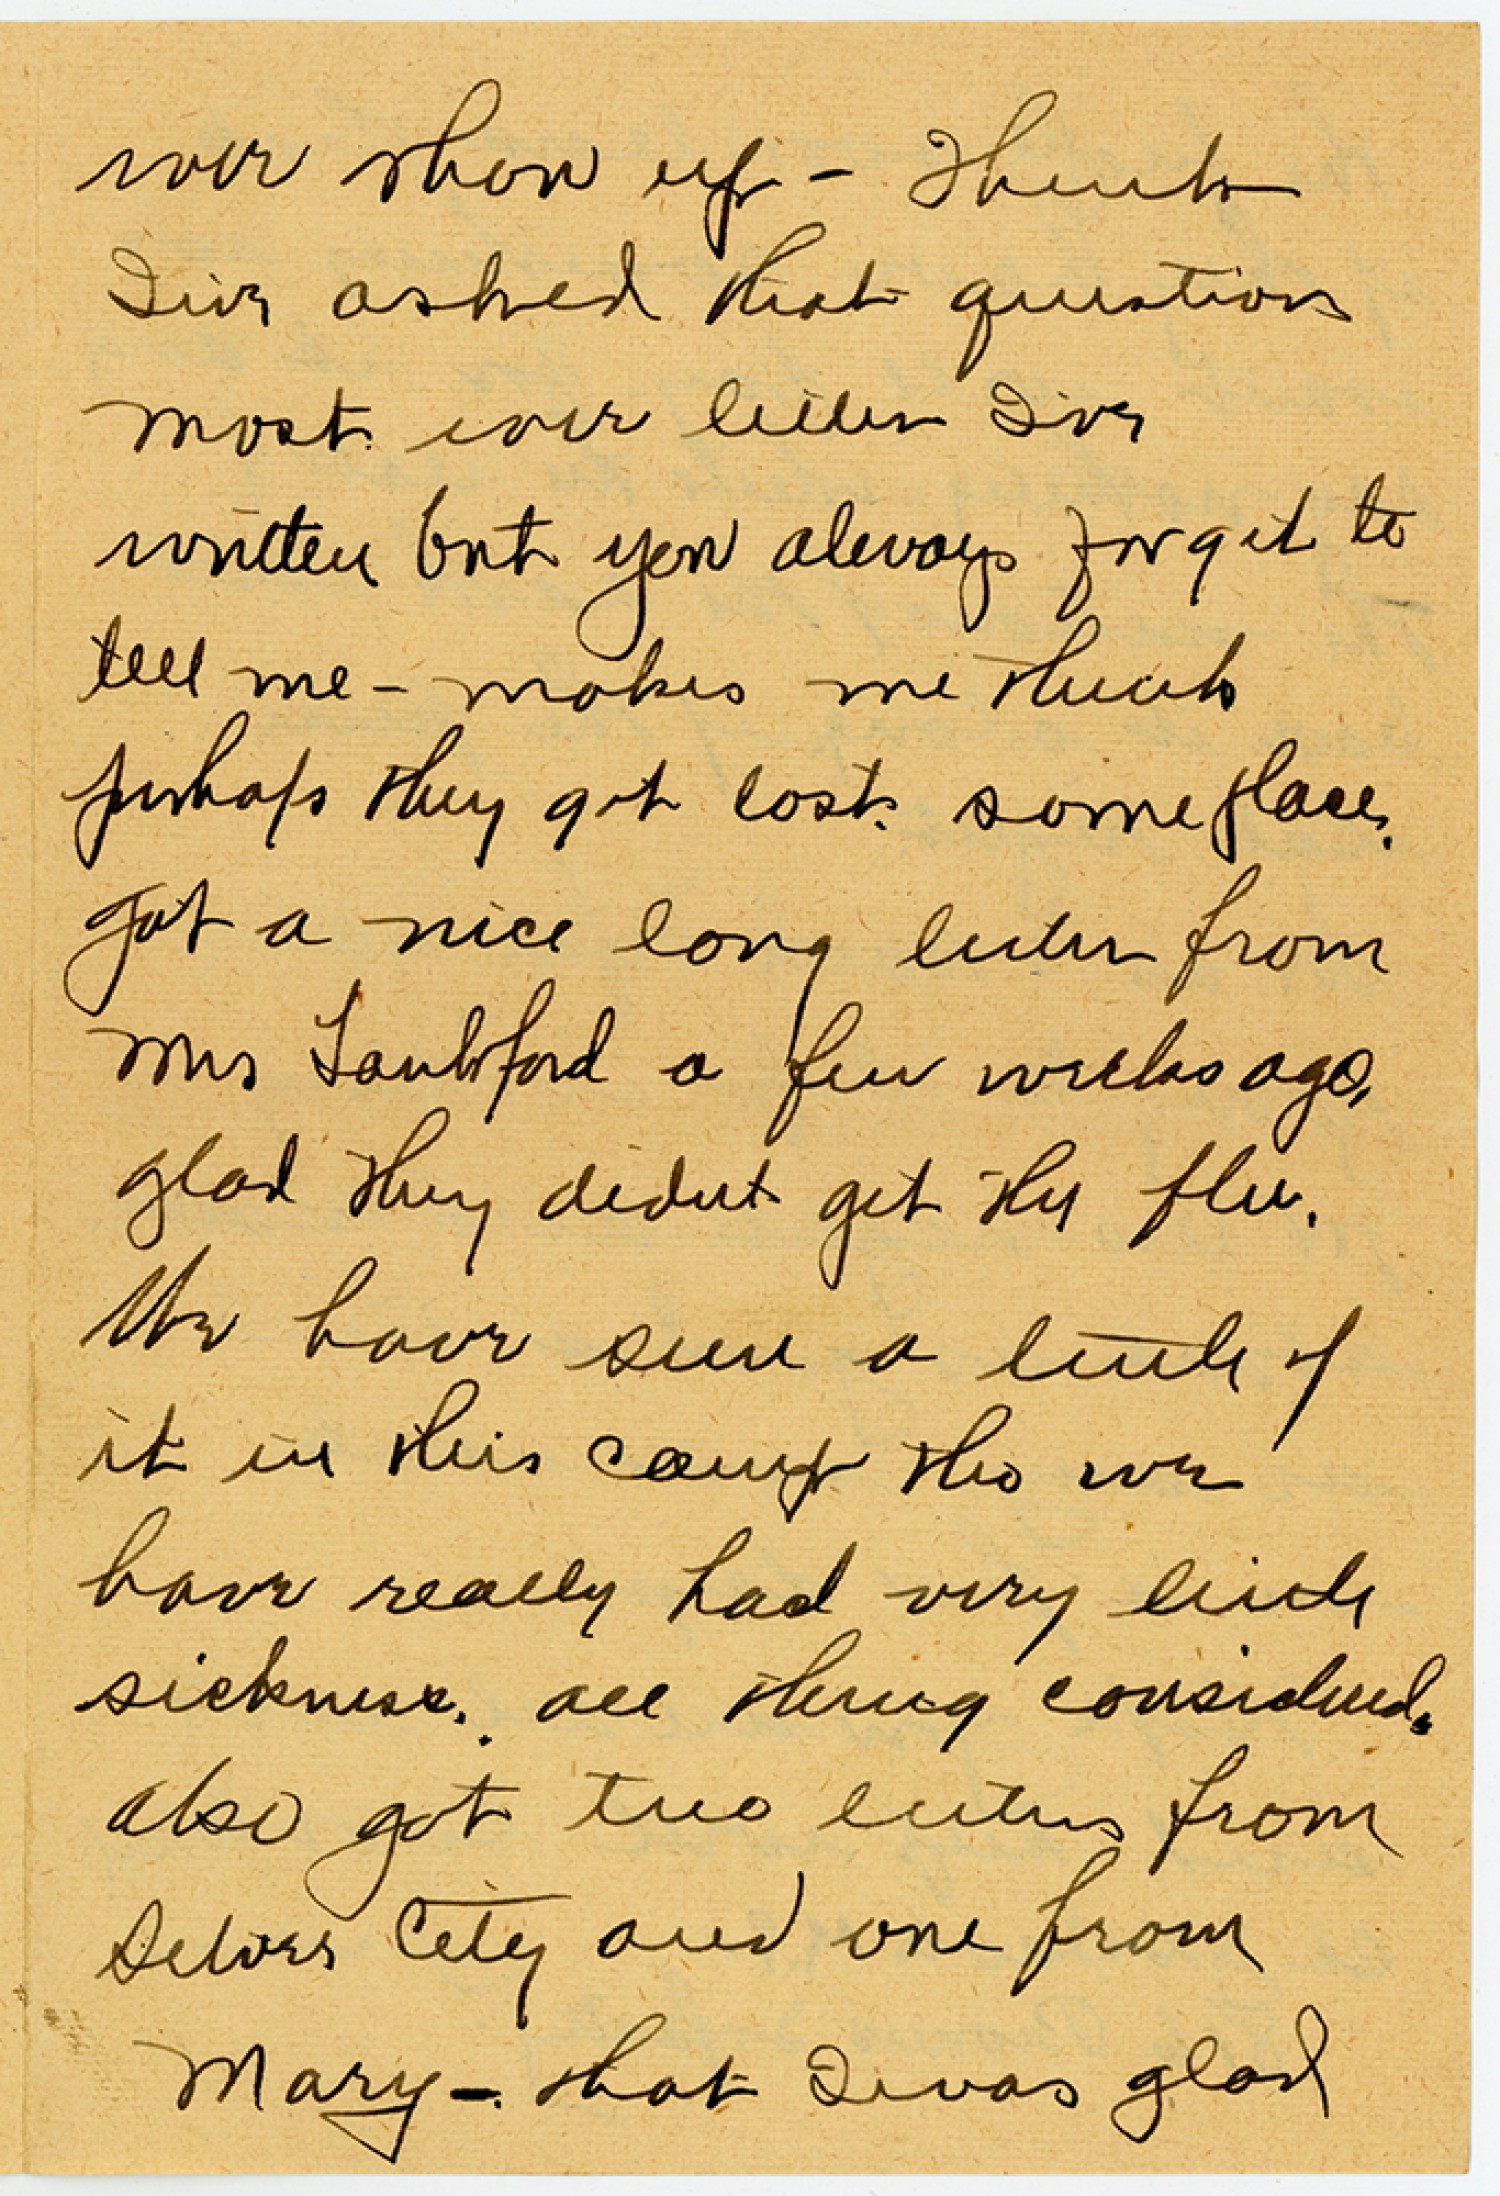 ever show up - Think
I've asked that question
most ever letter I've
written but you always forget to
tell me - makes me think
perhaps they got lost some place.
Got a nice long letter from
Mrs Lankford a few weeks ago,
glad they didnt get the flu.
We have seen a little of
it in this camp tho we
have really had very little
sickness. all thing considered.
also got two letters from
Silver City and one from
Mary - that I was glad